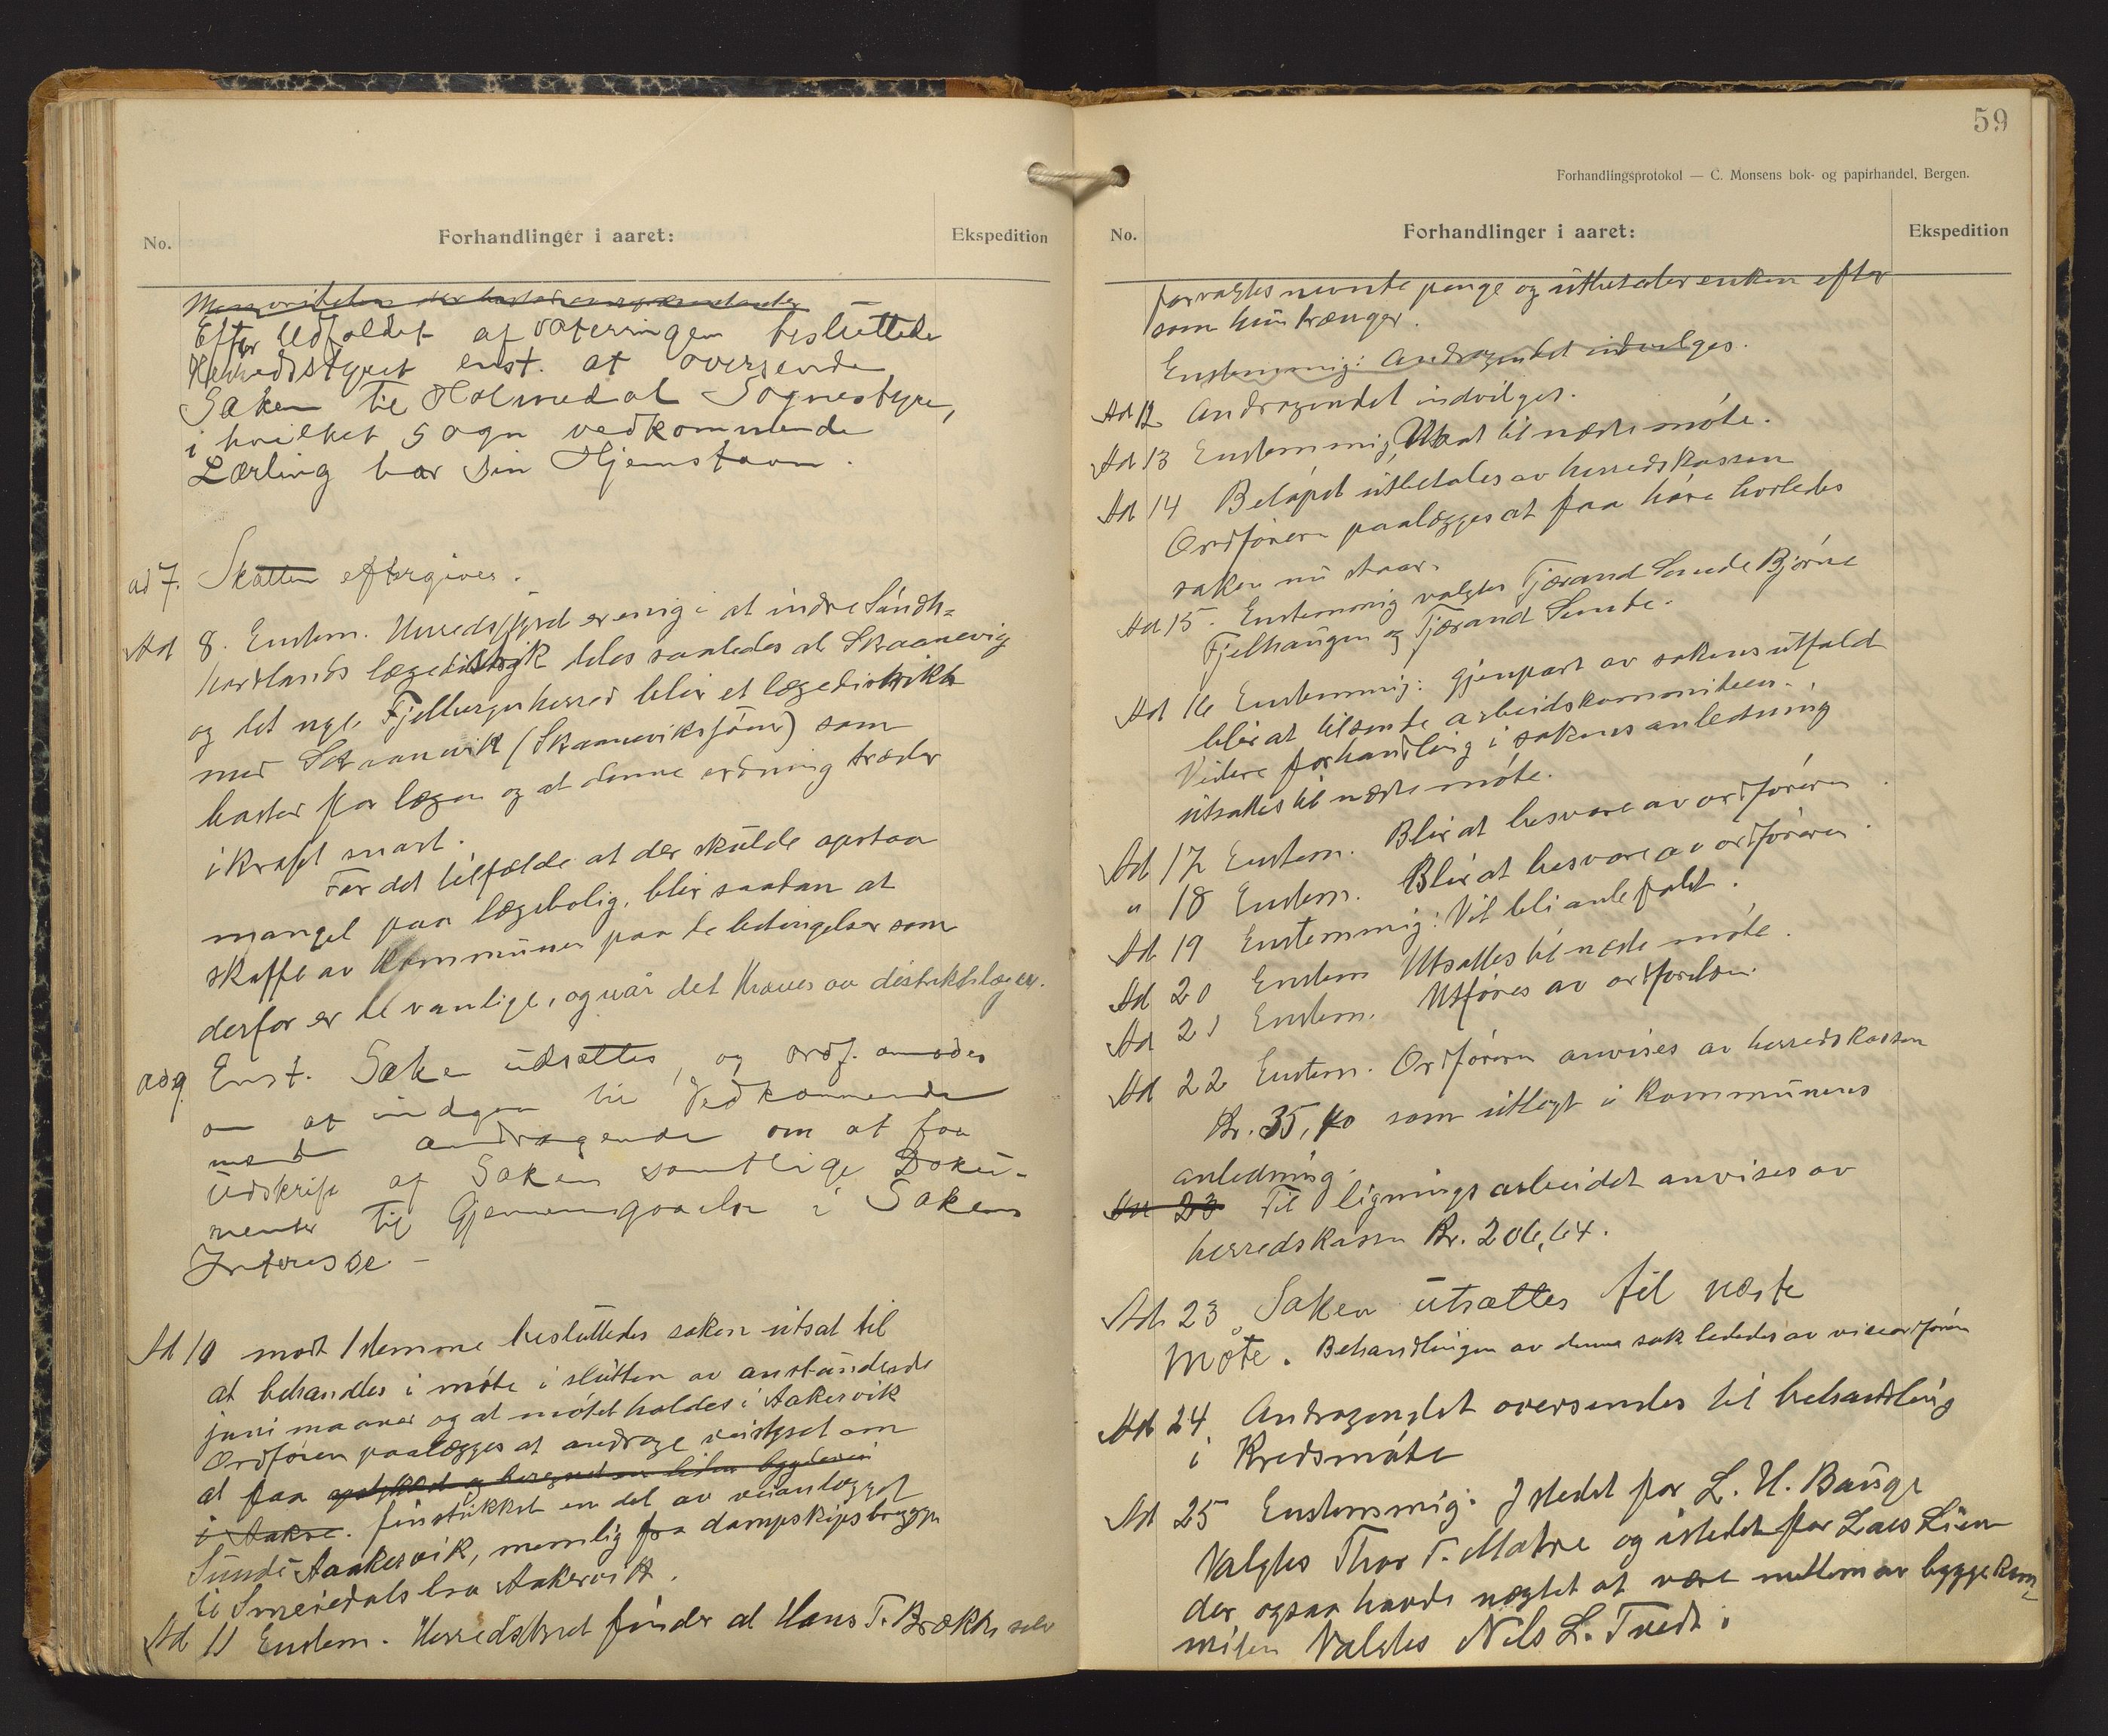 No.
Forhandlinger i aaret:
Ekspedition
Efter Udfaldet af Voteringen besluttede
Herredsstyret enst. at oversende
Saken til Holmedal Sognestyre,
i hvilket Sogn vedkommende
Lærling har sin Hjemstavn.
ad 7. Skatten eftergives.
Ad 8. Enstem. Herredsstyret er enig i at indre Söndh=
hordlands lægedistrik deles saaledes at Skaanevig
og det nye Fjelbergherred blir et lægedistrikt
med Skaanevik (Skaaneviksjöen) som
bosted for lægen og at denne ordning træder
i kraft snart.
For det tilfælde at der skulde opstaa
mangel paa lægebolig, blir saadan at
skaffe av kommunen paa de betingelser som
derfor er de vanlige, og når det kræves av distriktslægen.
ad 9. Enst. Saken udsættes, og ordf. anmodes
om at indgaa til Vedkommende
med andragende om at faa
Udskrift af Sakens samtlige Doku-
menter til Gjennemgaaelse i Sakens
Interesse. -
Ad 10 mot 1 stemme besluttedes saken utsat til
at behandles i möte i slutten av anstundende
juni maaned og at mötet holdes i Aakervik
Ordfören paalægges at andrage veistyret om
at faa opstukket og beregnet en liten bygdevei
i Aakre. finstukket en del av veianlægget
Sunde Aakervik, nemlig fra dampskipsbryggen
til Smededalsbra Aakervik.
Ad 11 Enstem. Herredstyret finder at Hans T. Brække selv
59
Forhandlingsprotokol — C. Monsens bok- og papirhandel, Bergen.
No.
Forhandlinger i aaret:
Ekspedition
forvalter nevnte penge og utbetaler enken efter
som hun trænger.
Enstemmig: Andragendet indvilges.
Ad 12 Andragendet indvilges.
Ad 13 Enstemmig, Utsat til næste möte.
Ad 14 Belöpet utbetales av herredskassen
Ordföreren paalægges at faa höre hvorledes
saken nu staar.
Ad 15. Enstemmig valgtes Tjærand Sunde Björne
Fjelhaugen og Tjærand Sunde.
Ad 16 Enstemmig: gjenpart av sakens utfald
blir at tilsende arbeidskommiteen.
Videre forhandling i sakens anledning
utsættes til næste möte.
Ad 17 Enstem. Blir at besvare av ordföreren
" 18 Enstem. Blir at besvare av ordföreren.
Ad 19 Enstemmig: Vil bli anbefalet.
Ad 20 Enstem Utsættes til næste möte.
Ad 21 Enstem. Utföres av ordföreren.
Ad 22 Enstem. Ordföreren anvises av herredskassen
Kr. 35,40 som utlagt i kommunens
anledning.
Ad 23 Til ligningsarbeidet anvises av
herredskassen Kr. 206,64.
Ad. 23. Saken utsættes til næste
Møte. Behandlingen av denne sak lededes av viceordfören
Ad 24. Andragendet oversendes til behandling
i Kredsmöte
Ad 25 Enstemmig: I stedet for L. H. Bauge
Valgtes Thor T. Matre og istedet for Lars Lien
der ogsaa havde nægtet at være medlem av byggekom=
miten Valgtes Nils L. Tvedt.